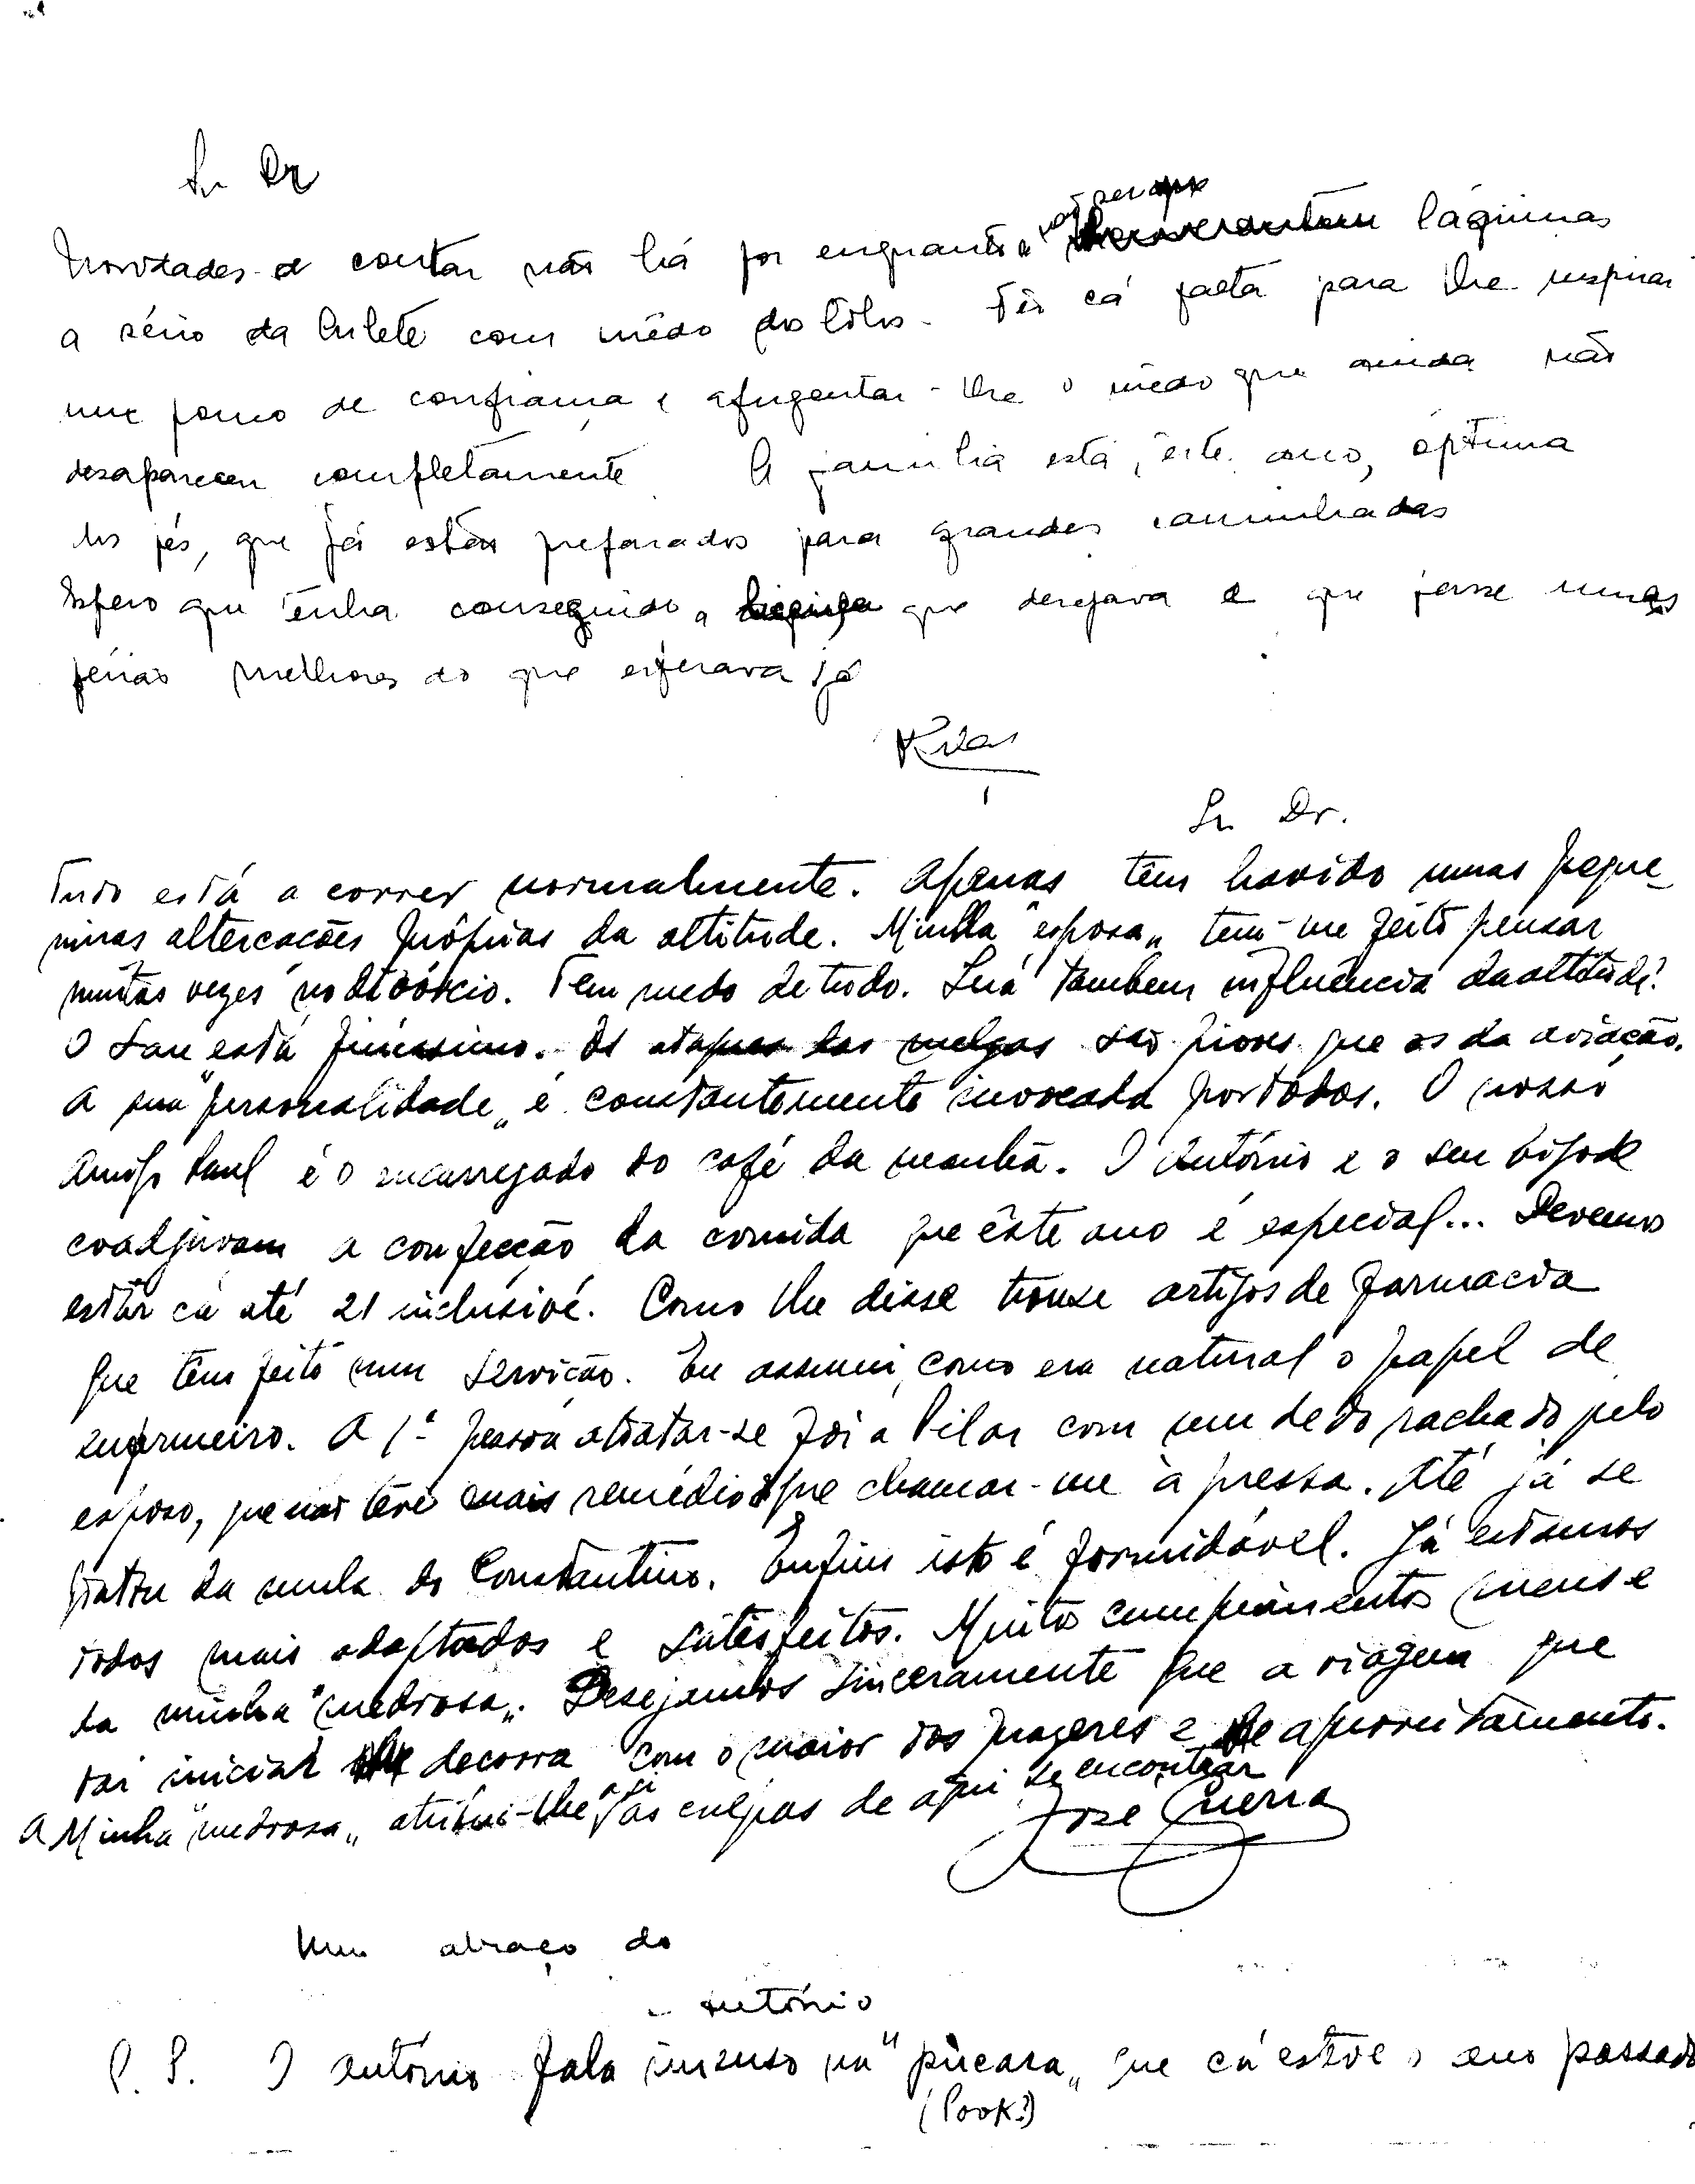 Sr Dr
Novidades a contar não há por enquanto a não ser as lágrimas
a sério da Arlete com mêdo dos lôbos. Fês cá falta para lhe inspirar
um pouco de confiança e afugentar-lhe o mêdo que ainda não
desapareceu completamente A família está, êste ano, óptima
dos pés, que já estão preparados para grandes caminhadas
Espero que tenha conseguido a que desejava e que passe umas
férias melhores do que esperava já
Pilar
Sr. Dr.
Tudo está a correr normalmente. Apenas têm havido umas peque-
ninas altercações próprias da altitude. Minha "esposa" tem-me feito pensar
muitas vezes no divórcio. Tem mêdo de tudo. Será tambem influência da altitude?
O Lau está finíssimo. Os ataques das melgas são piores que os da aviação.
A sua "personalidade" é constantemente invocada por todos. O nosso
amigo Saul é o encarregado do café da manhã. O António e o seu bigode
coadjuvam a confecção da comida que êste ano é especial... Devemos
estar cá até 21 inclusivé. Como lhe disse trouxe artigos de farmacia
que têm feito um servição. Eu assumi, como era natural o papel de
enfermeiro. A 1ª pessoa a tratar-se foi a Pilar com um dedo rachado pelo
esposo, que não teve mais remédio que chamar-me à pressa. Até já se
tratou da mula do Constantino. Enfim isto é formidável. Já estamos
todos mais adaptados e satisfeitos. Muitos cumprimentos meus e
da minha "medrosa". Desejamos sinceramente que a viagem que
vai iniciar decorra com o maior dos prazeres e aproveitamento.
A Minha "medrosa" atribui-lhe a si as culpas de aqui se encontrar
José Guerra
Um abraço do
António
P. S. O António fala imenso na "púcara" que cá esteve o ano passado
(Pook?)